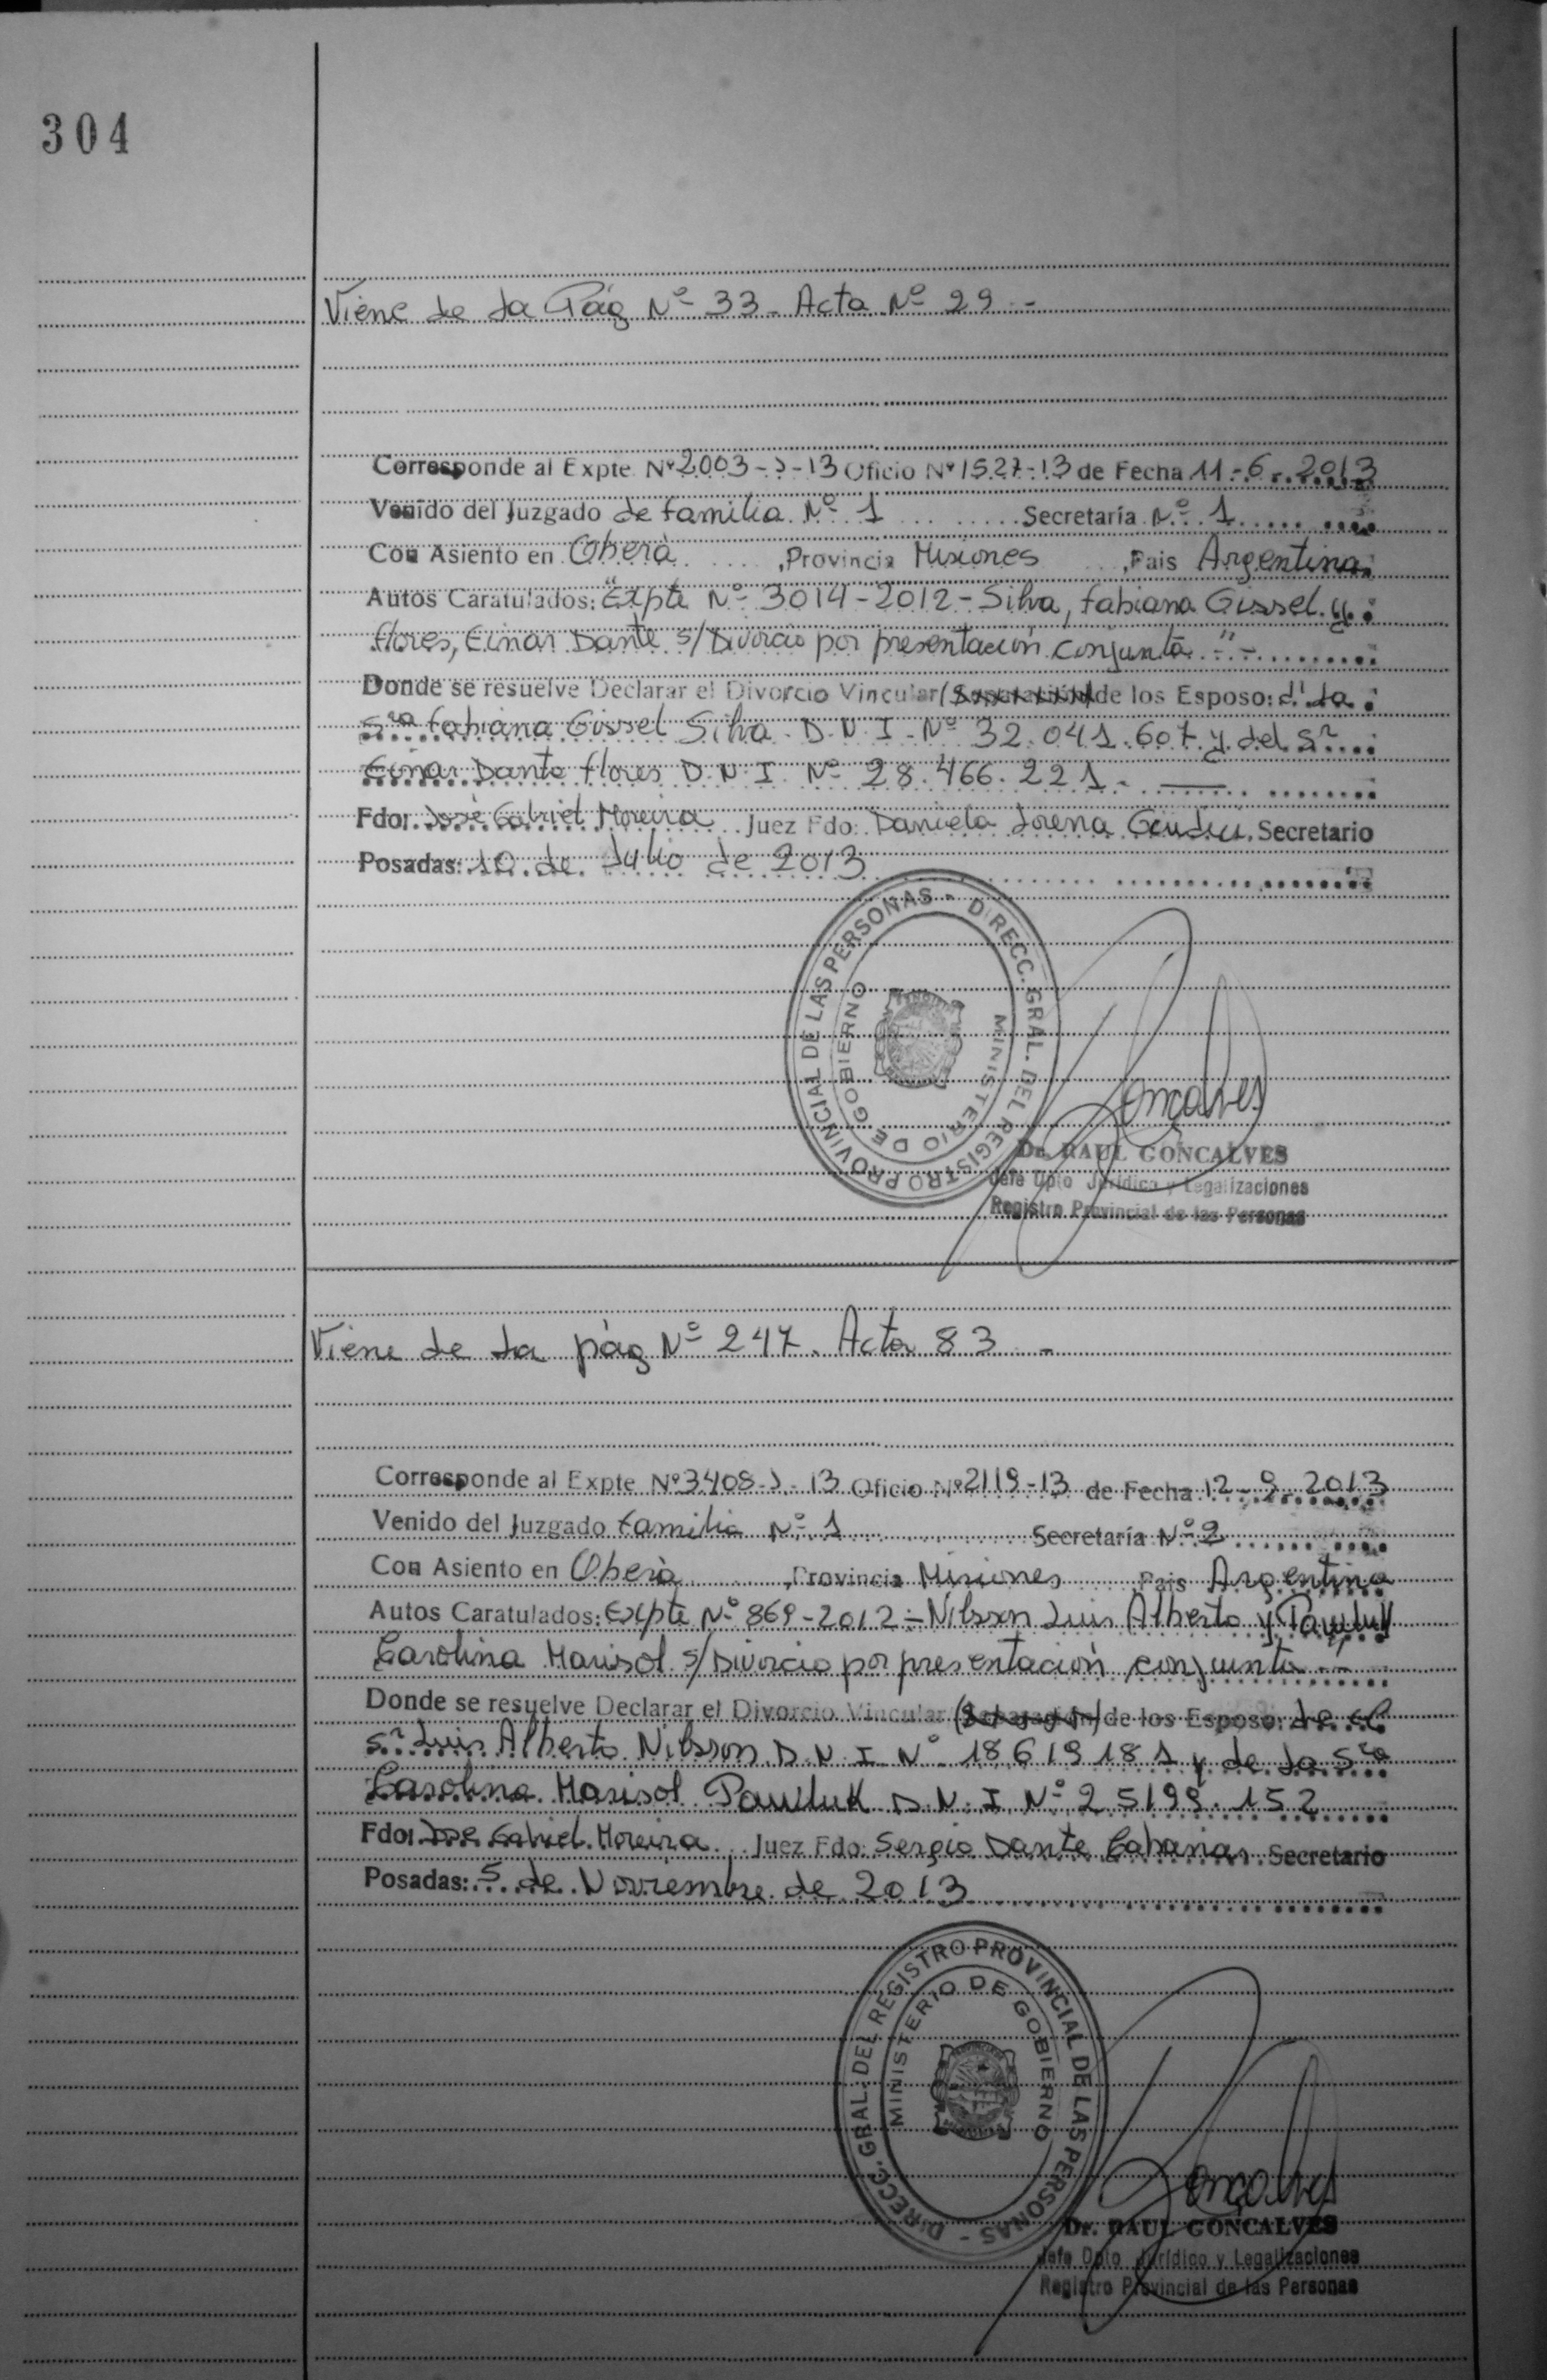 304
Viene de la Pág Nº 33 - Acta Nº 29 -
Corresponde al Expte Nº 2003-J-13 Oficio Nº 1527-13 de Fecha 11-6-2013
Venido del Juzgado de familia Nº 1 Secretaría Nº 1
Con Asiento en Oberá, Provincia Misiones, Pais Argentina
Autos Caratulados: "Expte Nº 3014-2012 - Silva, Fabiana Gissel y
Flores, Einar Dante s/Divorcio por presentación conjunta" -
Donde se resuelve Declarar el Divorcio Vincular (Separación) de los Esposo: d' la
Sra Fabiana Gissel Silva D.N.I. Nº 32.041.607 y del Sr
Einar Dante Flores D.N.I. Nº 28.466.221 -
Fdo: José Gabriel Moreira Juez Fdo: Daniela Lorena Secretario
Posadas: 10 de Julio de 2013
DIRECC. GRAL. DEL REGISTRO PROVINCIAL DE LAS PERSONAS -
MINISTERIO DE GOBIERNO
Goncalves
Dr. RAUL GONCALVES
Jefe Dpto Jurídico y Legalizaciones
Registro Provincial de las Personas
Viene de la pág Nº 247. Acta 83 -
Corresponde al Expte Nº 3408-J-13 Oficio Nº 2119-13 de Fecha 12-9-2013
Venido del Juzgado Familia Nº 1 Secretaría Nº 2
Con Asiento en Oberá, Provincia Misiones, Pais Argentina
Autos Caratulados: Expte Nº 869-2012 - Nilsson Luis Alberto y Pawluk
Carolina Marisol s/Divorcio por presentación conjunta -"
Donde se resuelve Declarar el Divorcio Vincular (Separación) de los Esposo: de el
Sr Luis Alberto Nilsson D.N.I Nº 18619181 y de la Sra
Carolina Marisol Pawluk D.N.I. Nº 25199.152
Fdo: Jose Gabriel Moreira, Juez Fdo: Sergio Dante Secretario
Posadas: 5 de Noviembre de 2013
DIRECC. GRAL. DEL REGISTRO PROVINCIAL DE LAS PERSONAS -
MINISTERIO DE GOBIERNO
Goncalves
Dr. RAUL GONCALVES
Jefe Dpto Jurídico y Legalizaciones
Registro Provincial de las Personas